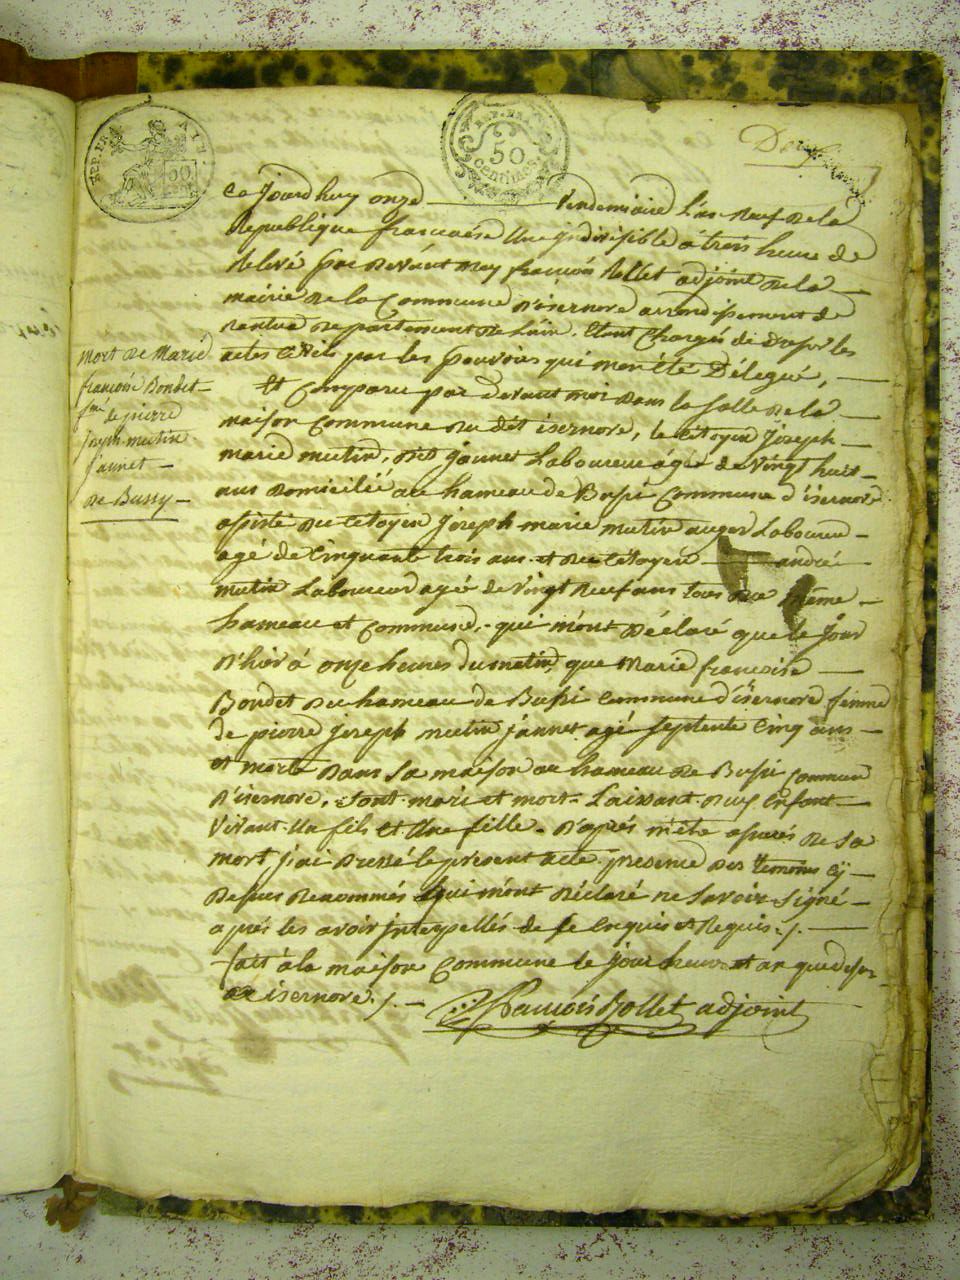 REP. FRA.
50
centimes
Ce jourdhuy onze vendemiaire L'an neuf de la
Republique francaise Une Indivisible a trois heure de
Relevé par devant moy françois Rollet adjoint de la
mairie de la Commune d'isernore arrondisement de
nantua departement de Lain. Etant Chargés de dresser les
actes Civils par les pouvoirs qui mon été Délegué,
Et Comparu par devant moi dans la Salle de la
maison Commune du dét isernore, le citoyen Joseph
marie mutin, dit jannet Laboureur agée de vingt huit
ans domicilié au hameau de Bussi Commune d'isernore
assisté du Citoyen Joseph marie mutin auger Laboureur
agé de Cinquante trois ans et du Citoyen andré
mutin Laboureur agé de vingt neuf ans tous du même
hameau et Commune, qui m'ont déclaré que le jour
d'hier à onze heures du matin, que Marie francoise
Bondet du hameau de Bussi Commune d'isernore femme
de pierre joseph mutin jannet agé septente Cinq ans
et morte dans sa maison au hameau de Bussi Commune
d'isernore, mari et mort Laissant Enfant
vivant Un fils et Une fille. d'aprés m'etre assurés de Sa
mort j'ai dressé le présent acte presence des temoins cÿ
dessus denommés qui m'ont déclaré ne Savoir Signé
aprés les avoir interpellés de se Enquis et Requis ./.
fait à la maison Commune le jour heure et an que dessus
isernore ./. francois Rollet adjoint
Mort de Marie
françoise Bondet
de pierre
joseph mutin
jannet
de Bussy